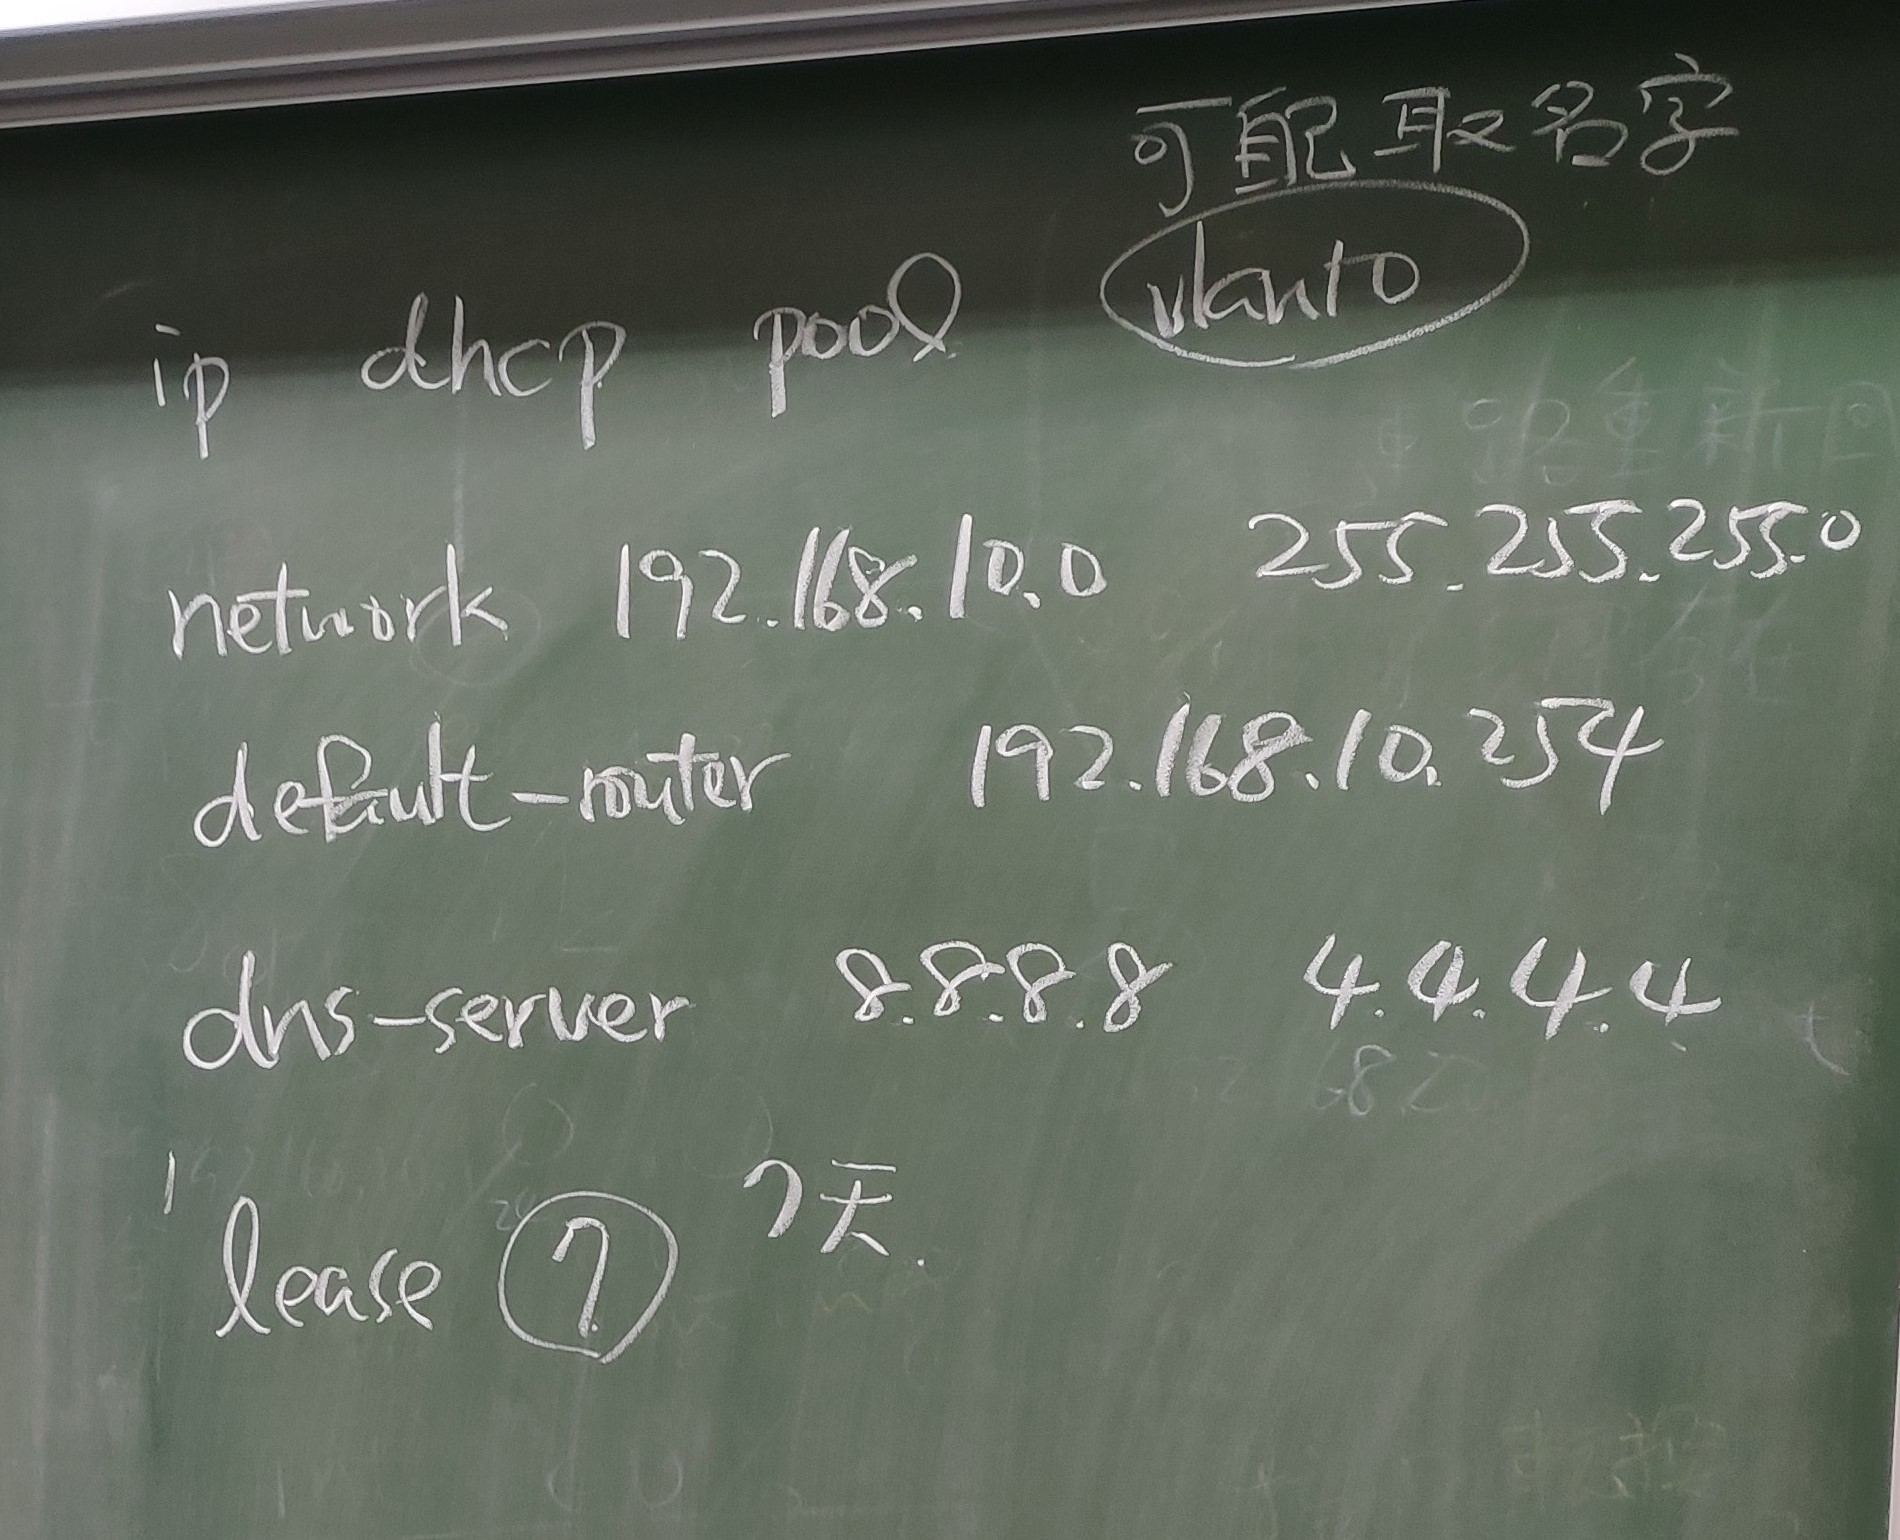 可配取名字
ip dhcp pool vlan10
network 192.168.10.0 255.255.255.0
default-router 192.168.10.254
dns-server 8.8.8.8 4.4.4.4
lease 7 7天.